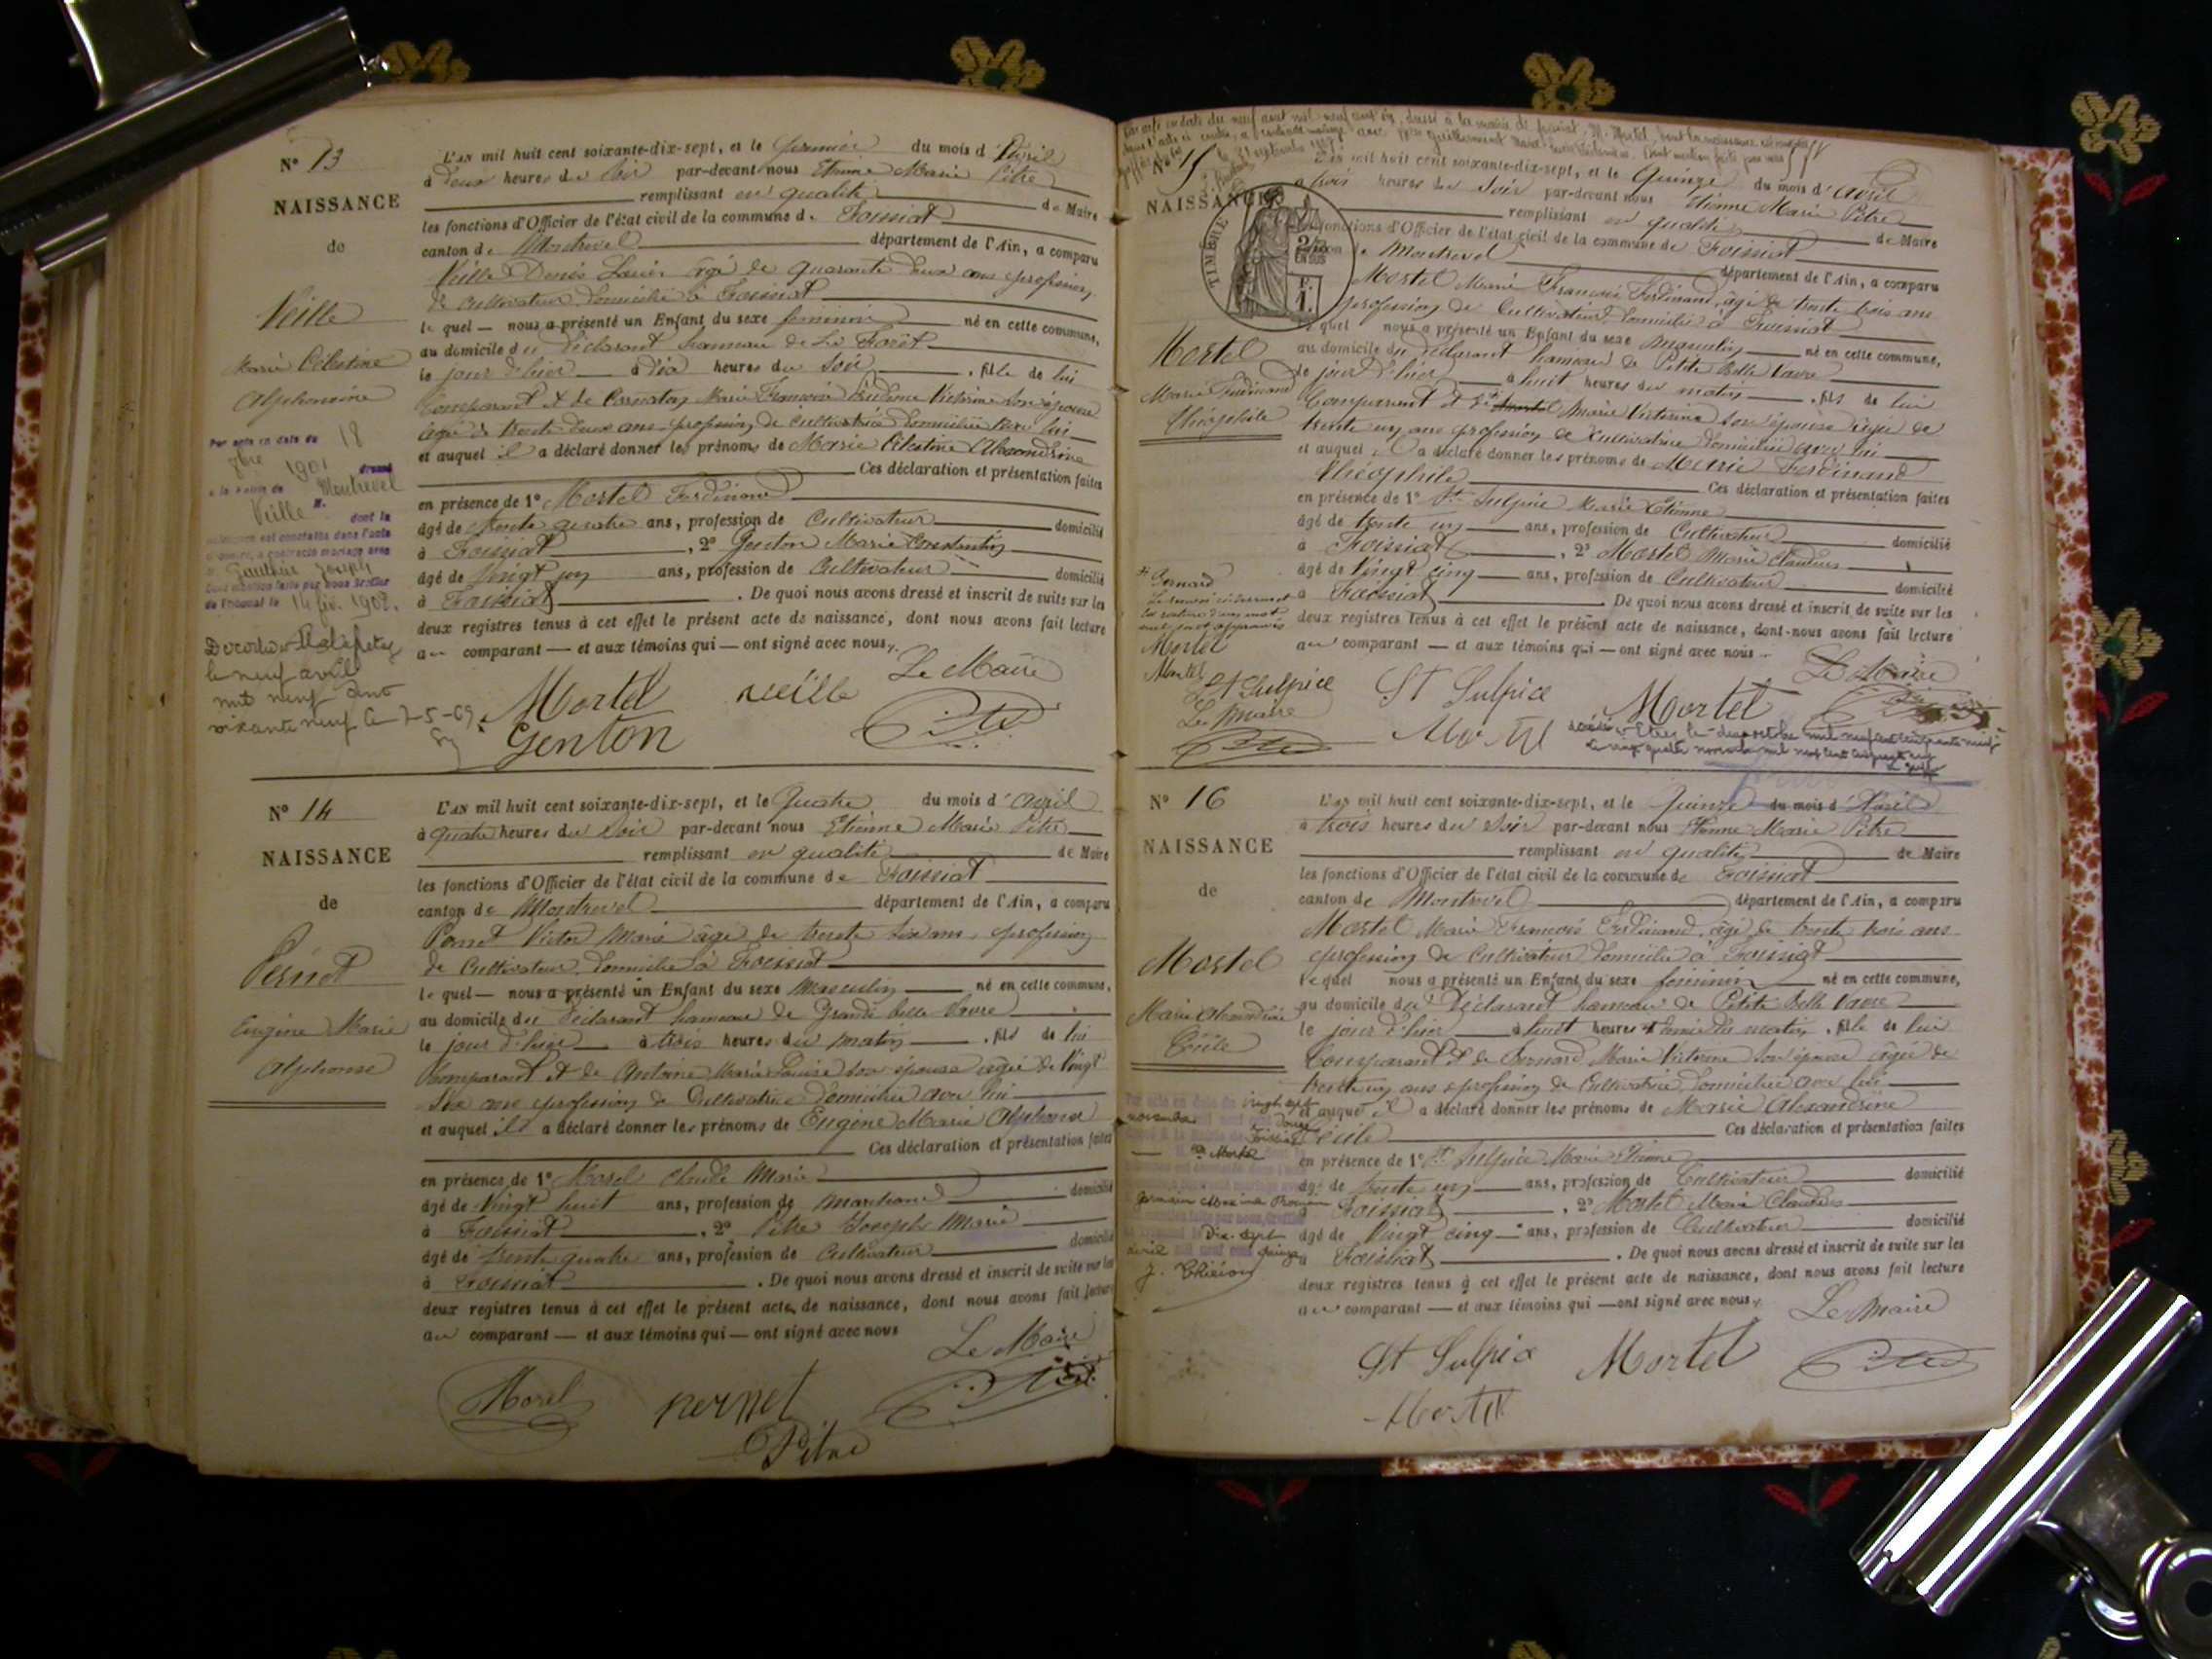 N° 13
NAISSANCE
de
Veille
Marie Célestine
Alphonsine
Par acte en date du 18
9bre 1901 dressé
à la Mairie de Montrevel
Veille dont la
naissance est constatée dans l'acte
ci-contre, a contracté mariage avec
Gauthier Joseph
Dont mention faite par nous Greffier
du Tribunal le 14 fév. 1902.
le neuf avril
mil neuf cent
soixante neuf
L'AN mil huit cent soixante-dix-sept, et le premier du mois d'Avril
à deux heures du Soir par-devant nous Etienne Marie Pitre
remplissant en qualité de Maire
les fonctions d'Officier de l'état civil de la commune de Foissiat
canton de Montrevel département de l'Ain, a comparu
Veille Denis Louis âgé de quarante deux ans profession
de Cultivateur domicilié à Foissiat
le quel — nous a présenté un Enfant du sexe féminin né en cette commune,
au domicile du Déclarant hameau de La Forêt
le jour d'hier à dix heures du Soir, fille de lui
Comparant et de Marie Françoise Victorine son épouse
âgée de trente deux ans profession de cultivatrice domiciliée avec lui
et auquel il a déclaré donner les prénoms de Marie Célestine
Ces déclaration et présentation faites
en présence de 1° Mortel Ferdinand
âgé de trente quatre ans, profession de Cultivateur domicilié
à Foissiat, 2° Genton Marie Constantin
âgé de Vingt un ans, profession de Cultivateur domicilié
à Foissiat. De quoi nous avons dressé et inscrit de suite sur les
deux registres tenus à cet effet le présent acte de naissance, dont nous avons fait lecture
au comparant — et aux témoins qui — ont signé avec nous.
Le Maire
Mortel veille
Genton Pitre
N° 14
NAISSANCE
de
Pernet
Eugène Marie
Alphonse
L'AN mil huit cent soixante-dix-sept, et le Quatre du mois d'avril
à quatre heures du Soir par-devant nous Etienne Marie Pitre
remplissant en qualité de Maire
les fonctions d'Officier de l'état civil de la commune de Foissiat
canton de Montrevel département de l'Ain, a comparu
Pernet Victor Marie âgé de trente six ans, profession
de Cultivateur domicilié à Foissiat
le quel — nous a présenté un Enfant du sexe Masculin né en cette commune,
au domicile du Déclarant hameau de Grande belle Vavre
le jour d'hier à trois heures du matin, fils de lui
Comparant et de Antoine Marie Louise son épouse âgée de Vingt
six ans profession de Cultivatrice domiciliée avec lui
et auquel il a déclaré donner les prénoms de Eugène Marie Alphonse
Ces déclaration et présentation faites
en présence de 1° Morel Claude Marie
âgé de Vingt huit ans, profession de Marchand domicilié
à Foissiat, 2° Pitre Joseph Marie
âgé de trente quatre ans, profession de Cultivateur domicilié
à Foissiat. De quoi nous avons dressé et inscrit de suite sur les
deux registres tenus à cet effet le présent acte de naissance, dont nous avons fait lecture
au comparant — et aux témoins qui — ont signé avec nous
Le Maire
Morel pernet Pitre
Pitre
N° 15
NAISSANCE
TIMBRE
2/10 EN SUS
Mortel
Marie Ferdinand
Théophile
Bernard
Mortel
Mortel
St Sulpice
Le Maire
L'an mil huit cent soixante-dix-sept, et le Quinze du mois d'avril
à trois heures du Soir par-devant nous Etienne Marie Pitre
remplissant en qualité de Maire
fonctions d'Officier de l'état civil de la commune de Foissiat
de Montrevel département de l'Ain, a comparu
Mortel Marie François Ferdinand, âgé de trente trois ans
profession de Cultivateur domicilié à Foissiat
le quel nous a présenté un Enfant du sexe Masculin né en cette commune,
au domicile du Déclarant hameau de Petite Belle Vavre
le jour d'hier à huit heures du matin, fils de lui
Comparant et de Marie Victorine son épouse âgée de
trente un ans profession de Cultivatrice domiciliée avec lui
et auquel il a déclaré donner les prénoms de Marie Ferdinand
Théophile Ces déclaration et présentation faites
en présence de 1° St Sulpice Marie Etienne
âgé de trente un ans, profession de Cultivateur domicilié
à Foissiat, 2° Mortel Marie Claudius
âgé de Vingt cinq ans, profession de Cultivateur domicilié
à Foissiat De quoi nous avons dressé et inscrit de suite sur les
deux registres tenus à cet effet le présent acte de naissance, dont nous avons fait lecture
au comparant — et aux témoins qui — ont signé avec nous
Le Maire
St Sulpice Mortel
Mortel
N° 16
NAISSANCE
de
Mortel
Marie Alexandrine
Cécile
vingt sept
novembre
Mortel
Dix sept
avril
L'an mil huit cent soixante-dix-sept, et le quinze du mois d'Avril
à trois heures du Soir par-devant nous Etienne Marie Pitre
remplissant en qualité de Maire
les fonctions d'Officier de l'état civil de la commune de Foissiat
canton de Montrevel département de l'Ain, a comparu
Mortel Marie François Ferdinand, âgé de trente trois ans
profession de Cultivateur domicilié à Foissiat
le quel nous a présenté un Enfant du sexe féminin né en cette commune,
au domicile du Déclarant hameau de Petite Belle Vavre
le jour d'hier à huit heures et demie du matin, fille de lui
Comparant et de Bernard Marie Victorine son épouse âgée de
trente un ans profession de Cultivatrice domiciliée avec lui
et auquel il a déclaré donner les prénoms de Marie Alexandrine
Cécile Ces déclaration et présentation faites
en présence de 1° St Sulpice Marie Etienne
âgé de trente un ans, profession de Cultivateur domicilié
Foissiat, 2° Mortel Marie Claudius
âgé de Vingt cinq ans, profession de Cultivateur domicilié
Foissiat. De quoi nous avons dressé et inscrit de suite sur les
deux registres tenus à cet effet le présent acte de naissance, dont nous avons fait lecture
au comparant — et aux témoins qui — ont signé avec nous.
Le Maire
St Sulpice Mortel Pitre
Mortel